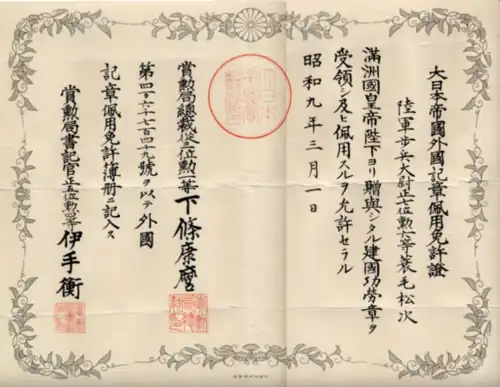 大日本帝國外國記章佩用免許證
陸軍歩兵大尉正七位勲六等蓑毛松次
滿洲國皇帝陛下ヨリ贈與シタル建國功勞章ヲ
受領シ及ヒ佩用スルヲ允許セラル
昭和九年三月一日
賞勲局總裁從三位勲一等下條康麿
第四万六千七百四十九號ヲ以テ外國
記章佩用免許簿册ニ記入ス
賞勲局書記官正五位勲四等伊手衡